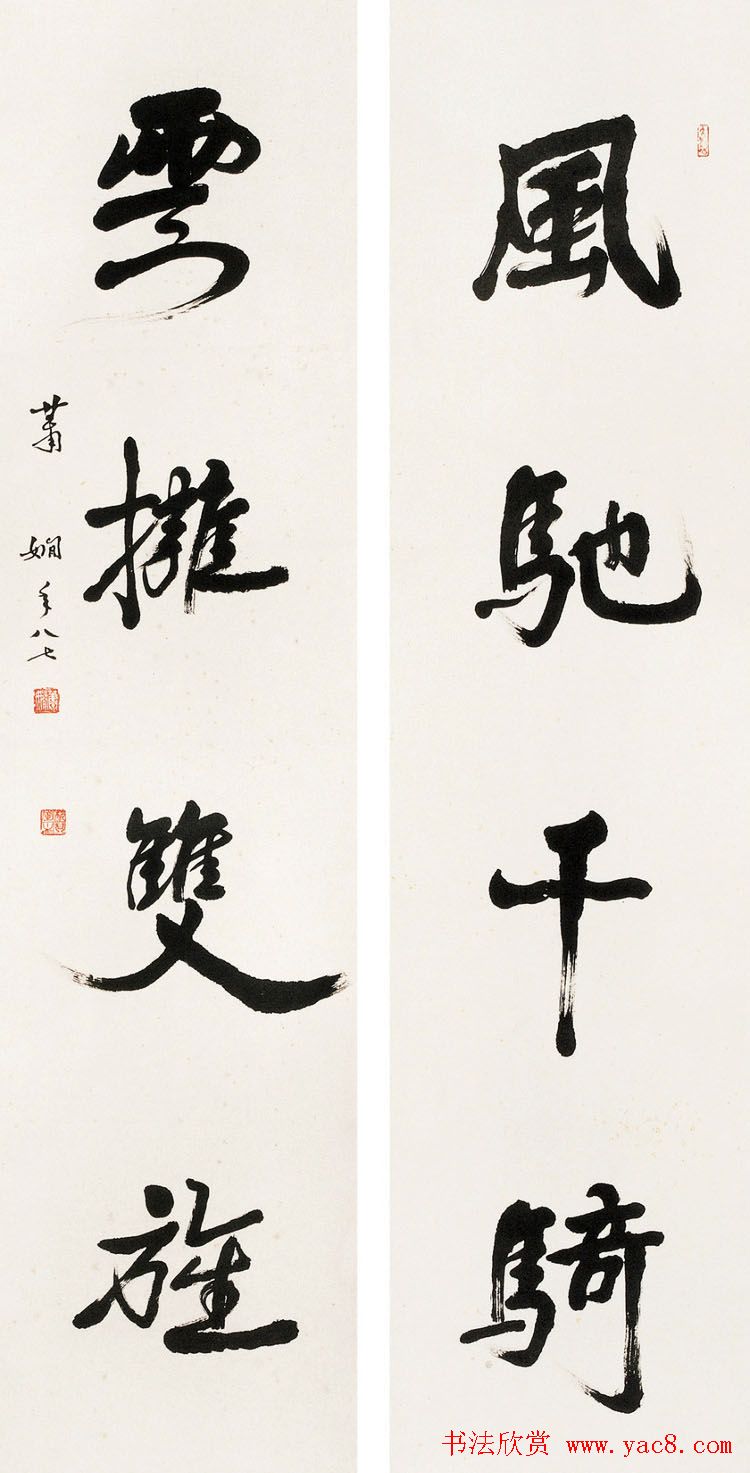 風馳千騎
雲擁雙旌
蕭嫻年八七
书法欣赏 www.yac8.com